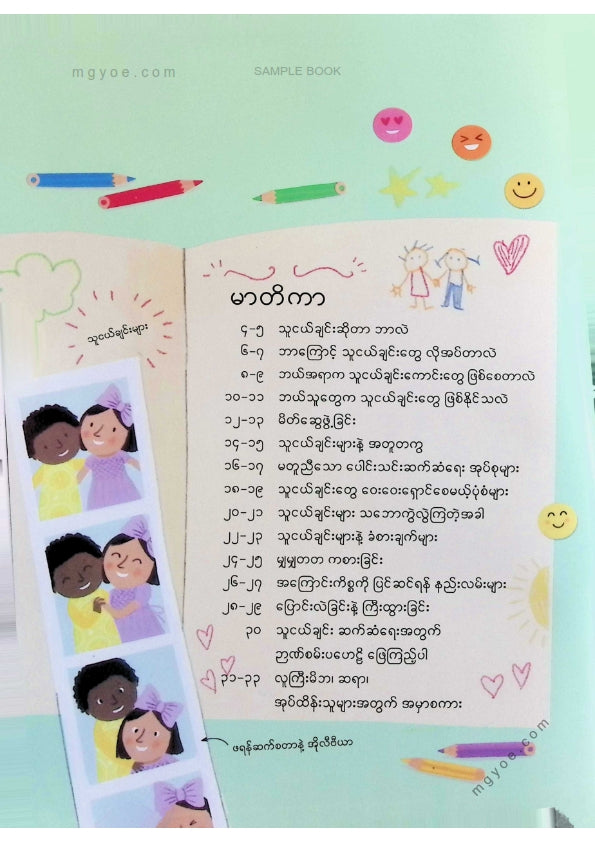 mgyoe.com
SAMPLE BOOK
သူငယ်ချင်းများ
မာတိကာ
၄-၅ သူငယ်ချင်းဆိုတာ ဘာလဲ
၆-၇ ဘာကြောင့် သူငယ်ချင်းတွေ လိုအပ်တာလဲ
၈-၉ ဘယ်အရာက သူငယ်ချင်းကောင်းတွေ ဖြစ်စေတာလဲ
၁၀-၁၁ ဘယ်သူတွေက သူငယ်ချင်းတွေ ဖြစ်နိုင်သလဲ
၁၂-၁၃ မိတ်ဆွေဖွဲ့ခြင်း
၁၄-၁၅ သူငယ်ချင်းများနဲ့ အတူတကွ
၁၆-၁၇ မတူညီသော ပေါင်းသင်းဆက်ဆံရေး အုပ်စုများ
၁၈-၁၉ သူငယ်ချင်းတွေ ဝေးဝေးရှောင်စေမယ့်ပုံစံများ
၂၀-၂၁ သူငယ်ချင်းများ သဘောကွဲလွဲကြတဲ့အခါ
၂၂-၂၃ သူငယ်ချင်းများနဲ့ ခံစားချက်များ
၂၄-၂၅ မျှမျှတတ ကစားခြင်း
၂၆-၂၇ အကြောင်းကိစ္စကို ပြင်ဆင်ရန် နည်းလမ်းများ
၂၈-၂၉ ပြောင်းလဲခြင်းနဲ့ ကြီးထွားခြင်း
၃၀ သူငယ်ချင်း ဆက်ဆံရေးအတွက်
ဉာဏ်စမ်းပဟေဠိ ဖြေကြည့်ပါ
၃၁-၃၃ လူကြီးမိဘ၊ ဆရာ၊
အုပ်ထိန်းသူများအတွက် အမှာစကား
ဖရန်ဆက်စတာနဲ့ အိုလီဗီယာ
mgyoe.com